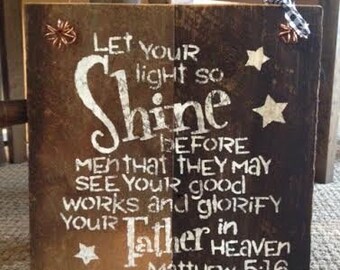 LET YOUR
light SO
Shine
BEFORE
MEN THAT THEY MAY
SEE YOUR GOOD
WORKS AND GLORIFY
YOUR Father in
HEAVEN
Matthew 5:16